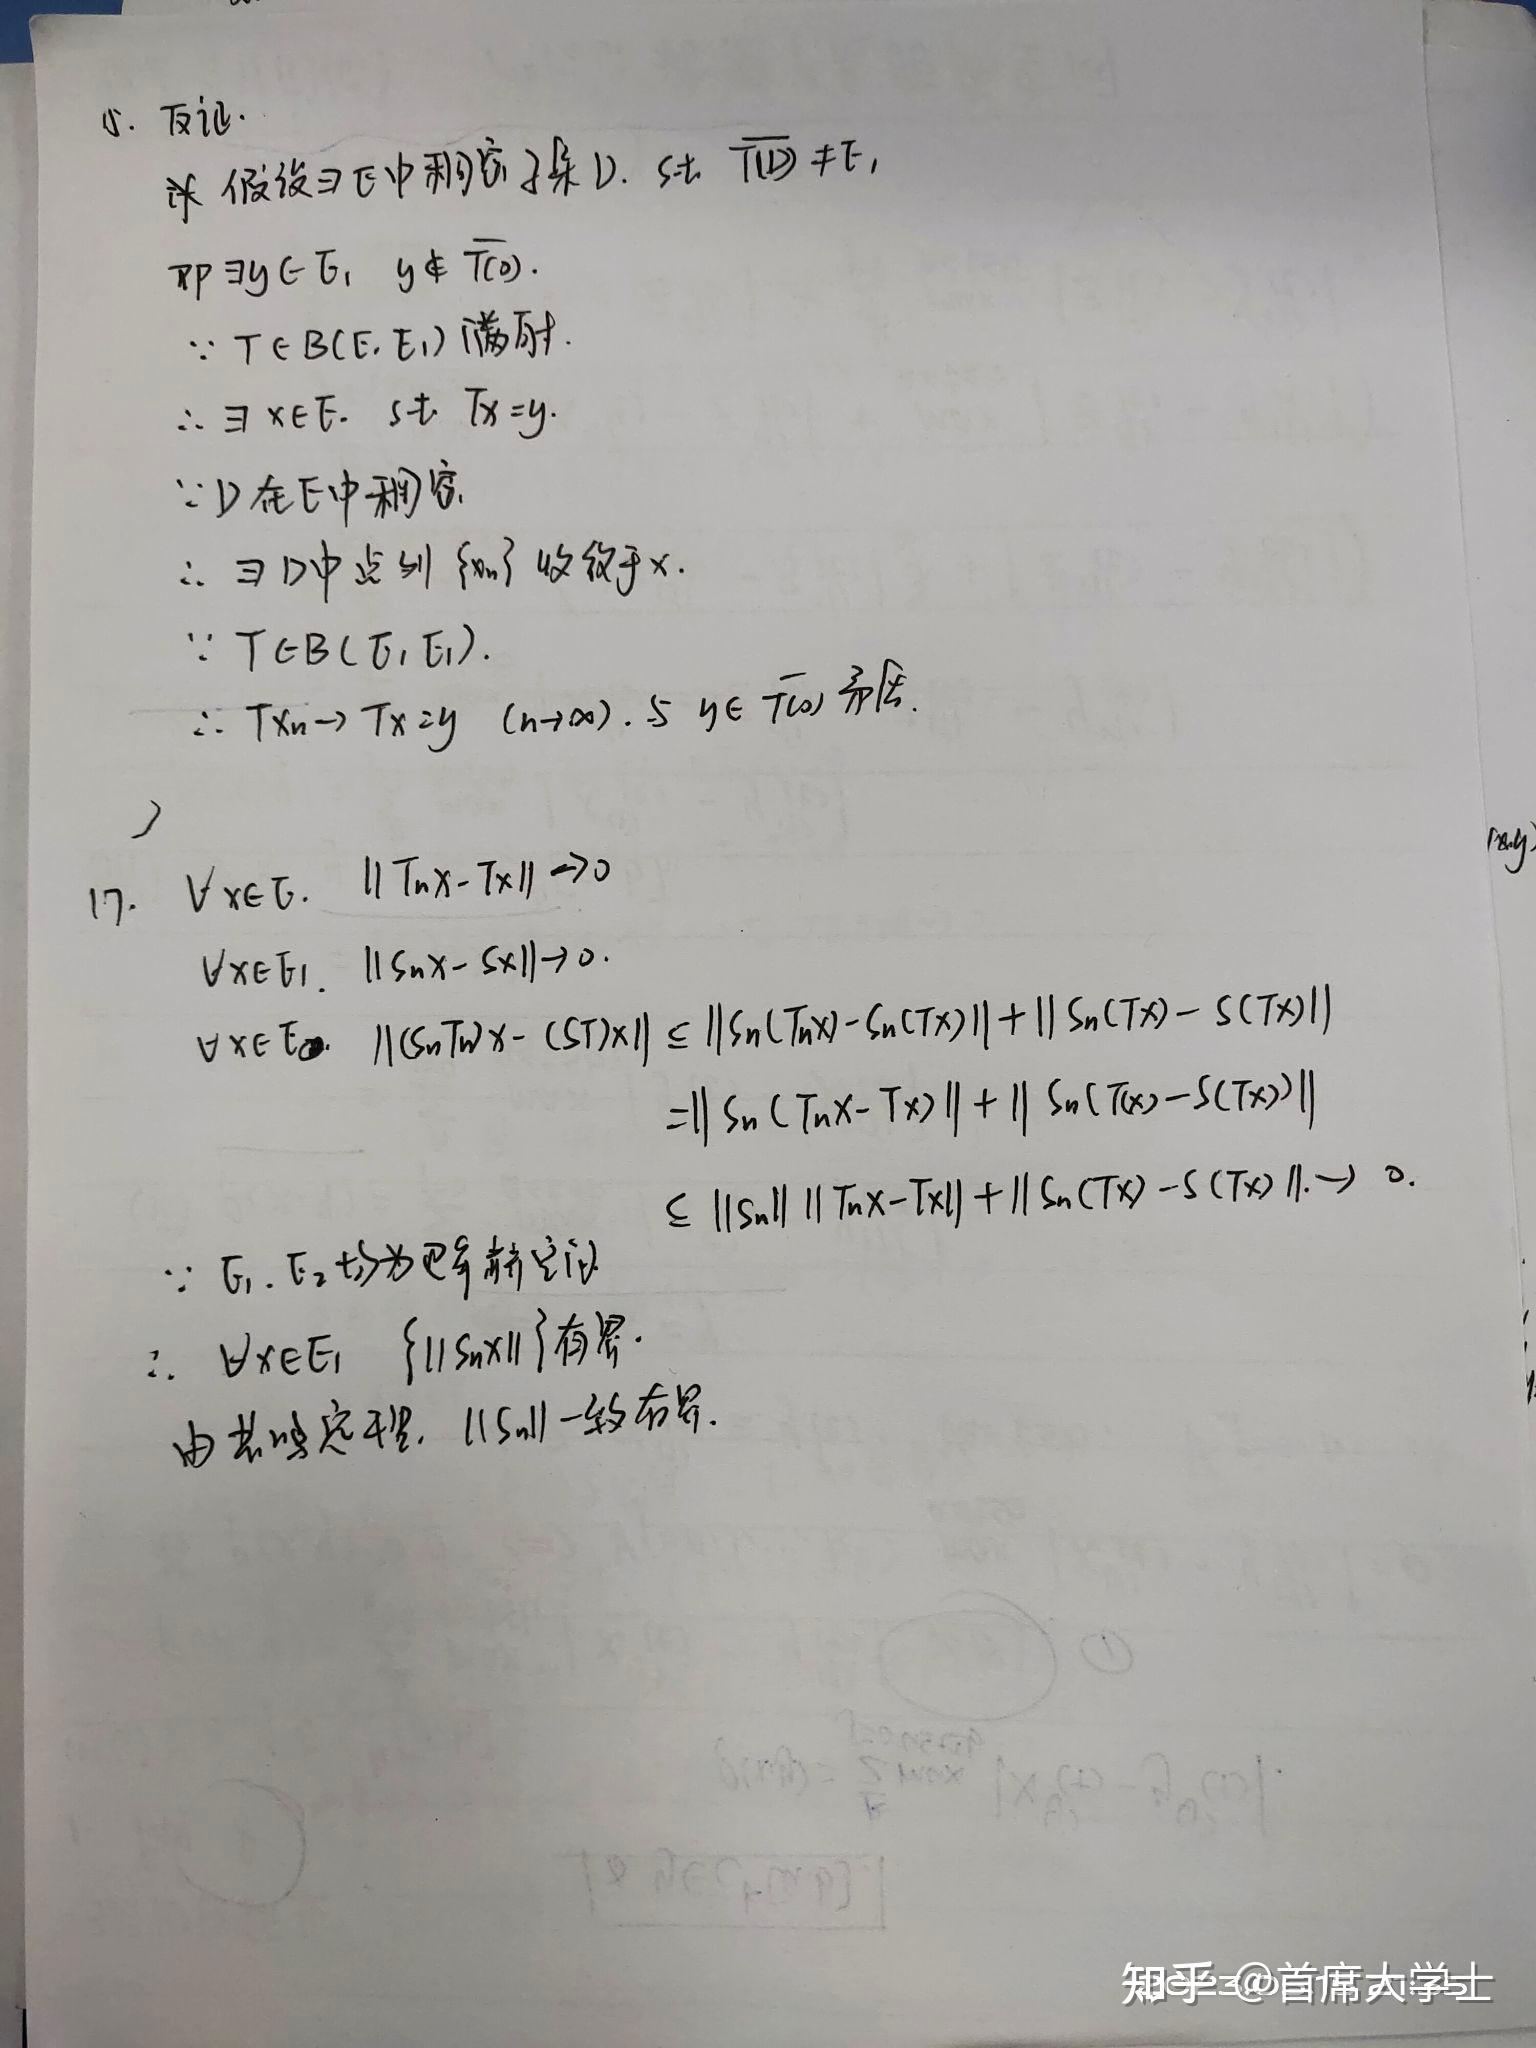 15. 反证.
假设∃E中稠密子集D. s.t. \overline{T(D)} ≠ E₁
即∃y∈E₁ y∉\overline{T(D)}.
∵ T∈B(E, E₁) 满射.
∴ ∃x∈E. s.t. Tx=y.
∵ D在E中稠密.
∴ ∃D中点列{xₙ}收敛于x.
∵ T∈B(E, E₁).
∴ Txₙ→Tx=y (n→∞). 与 y∈\overline{T(D)} 矛盾.
17. ∀x∈E. ||Tₙx-Tx||→0
∀x∈E₁. ||Sₙx-Sx||→0.
∀x∈E. ||(SₙTₙ)x-(ST)x|| ≤ ||Sₙ(Tₙx)-Sₙ(Tx)||+||Sₙ(Tx)-S(Tx)||
=||Sₙ(Tₙx-Tx)||+||Sₙ(Tx)-S(Tx))||
≤ ||Sₙ|| ||Tₙx-Tx||+||Sₙ(Tx)-S(Tx)||.→ 0.
∵ E₁, E₂均为巴拿赫空间
∴ ∀x∈E₁ {||Sₙx||}有界.
由共鸣定理, ||Sₙ||一致有界.
知乎 @首席大学士